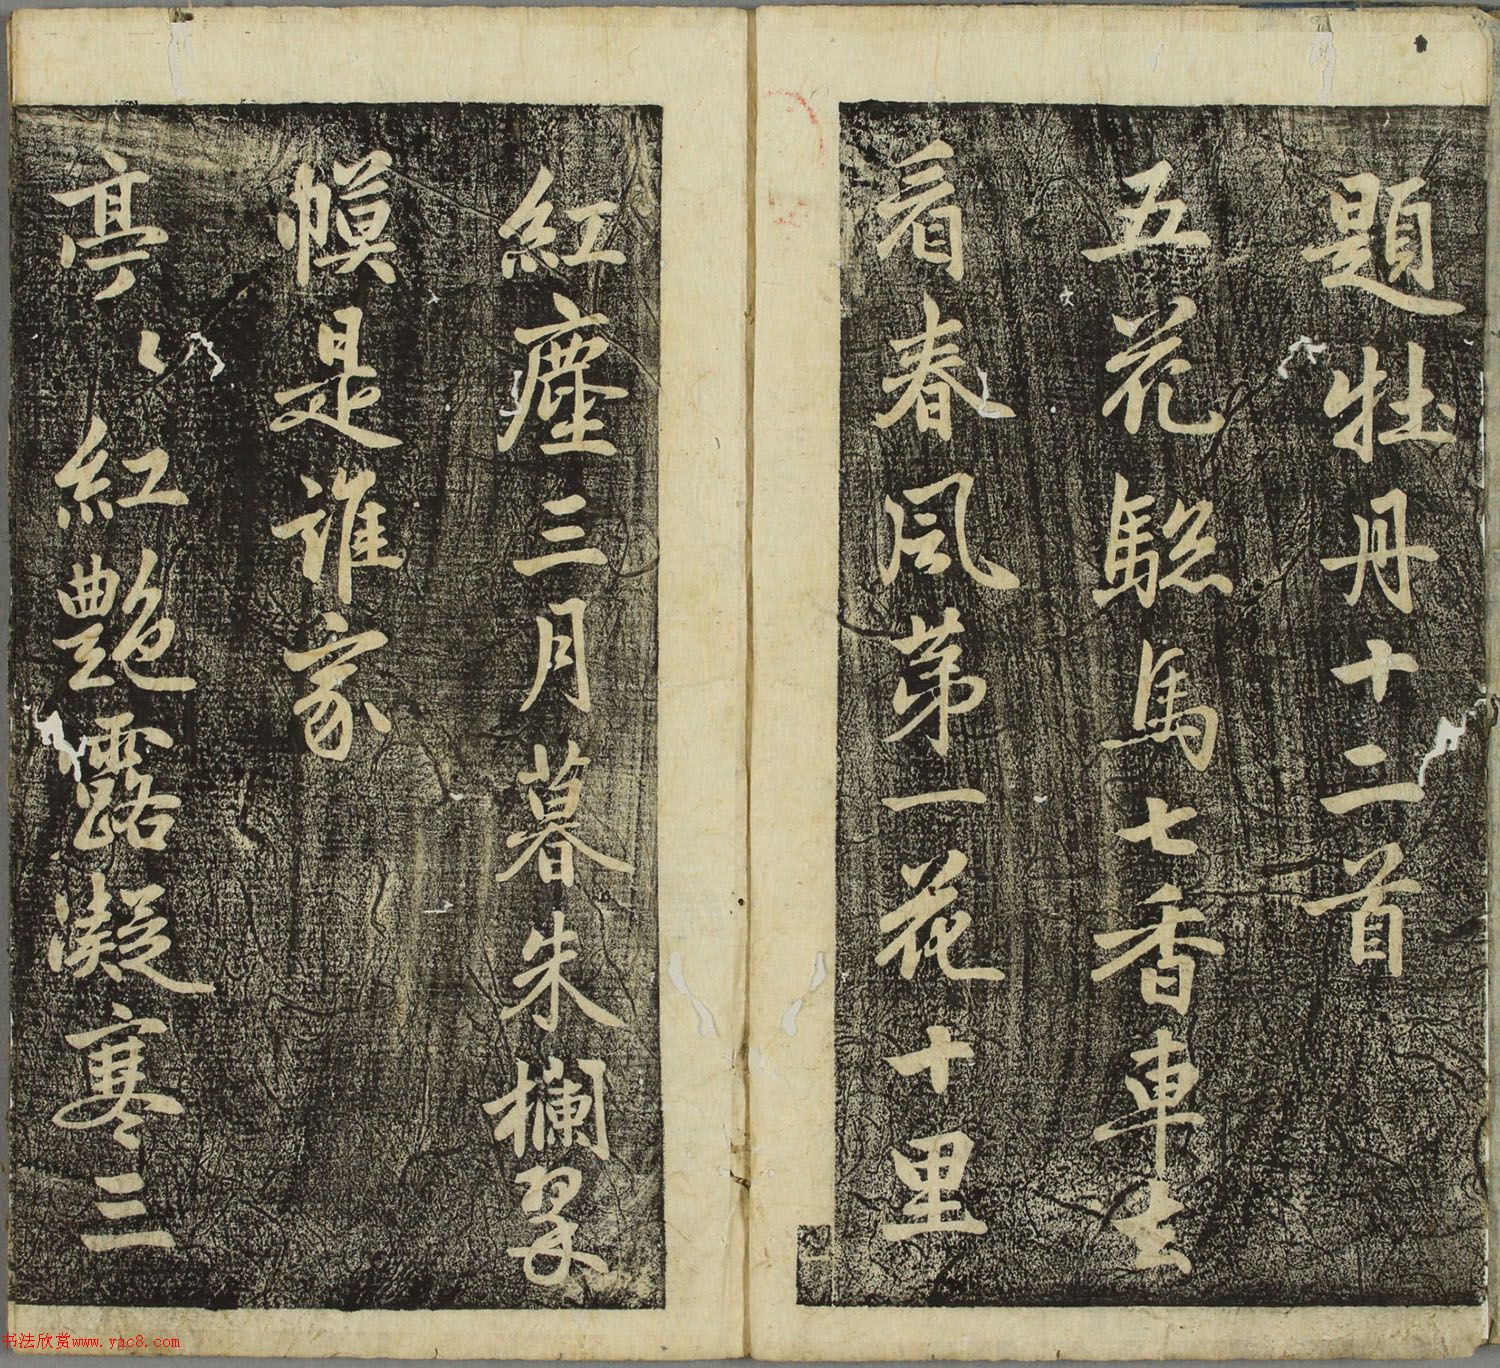 題牡丹十二首
五花驄馬七香車去
看春風第一花十里
紅塵三月暮朱欄翠
幙是誰家
亭〻紅艷露凝寒三
书法欣赏www.yac8.com